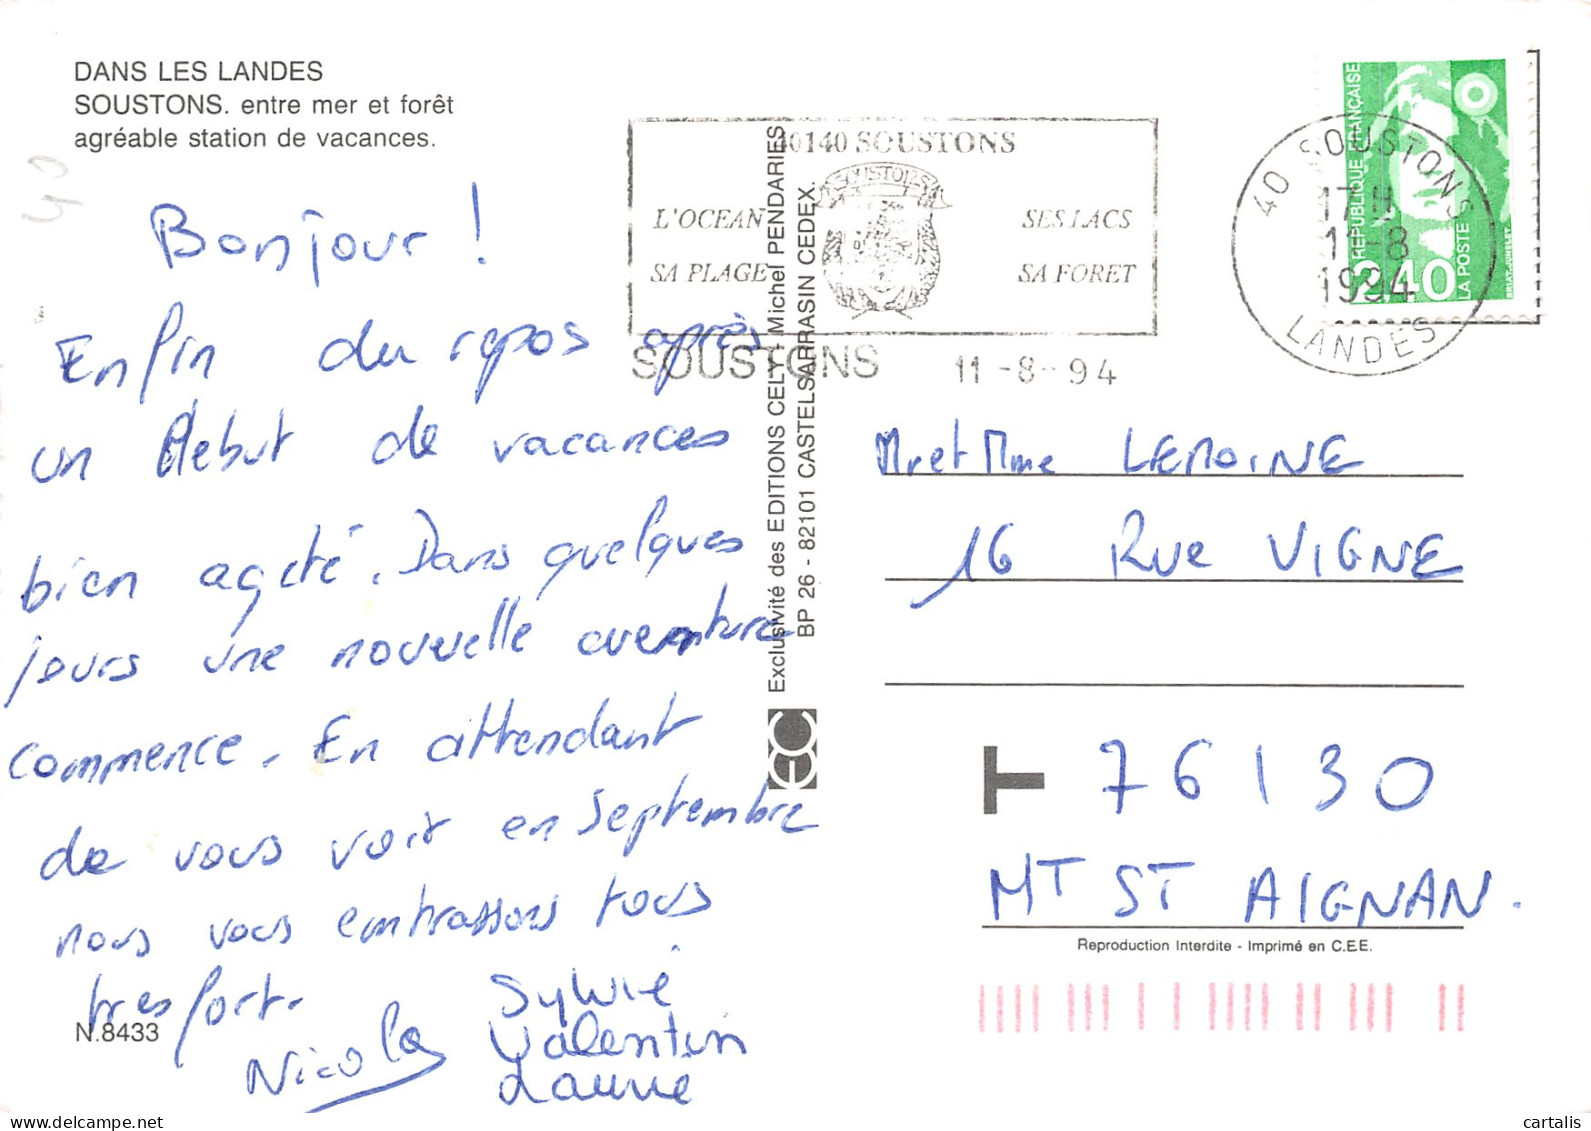 DANS LES LANDES
SOUSTONS. entre mer et forêt
agréable station de vacances.
40
Bonjour !
Enfin du repos après
un debut de vacances
bien agité. Dans quelques
jours une nouvelle aventure
commence. En attendant
de vous voir en septembre
nous vous embrassons tous
tres fort.
Nicolas
Sylvie
Valentin
Laurie
N.8433
Exclusivité des EDITIONS CELY - Michel PENDARIES
BP 26 - 82101 CASTELSARRASIN CEDEX.
EC
40140 SOUSTONS
SOUSTONS
L'OCEAN SES LACS
SA PLAGE SA FORET
SOUSTONS 11-8-94
REPUBLIQUE FRANÇAISE
2,40
LA POSTE
BRIAT-JUMELET
40 SOUSTONS
17 H
11-8
1994
LANDES
Mr et Mme LEMOINE
16 RUE VIGNE
T 76130
MT ST AIGNAN.
Reproduction Interdite - Imprimé en C.E.E.
cartalis
www.delcampe.net